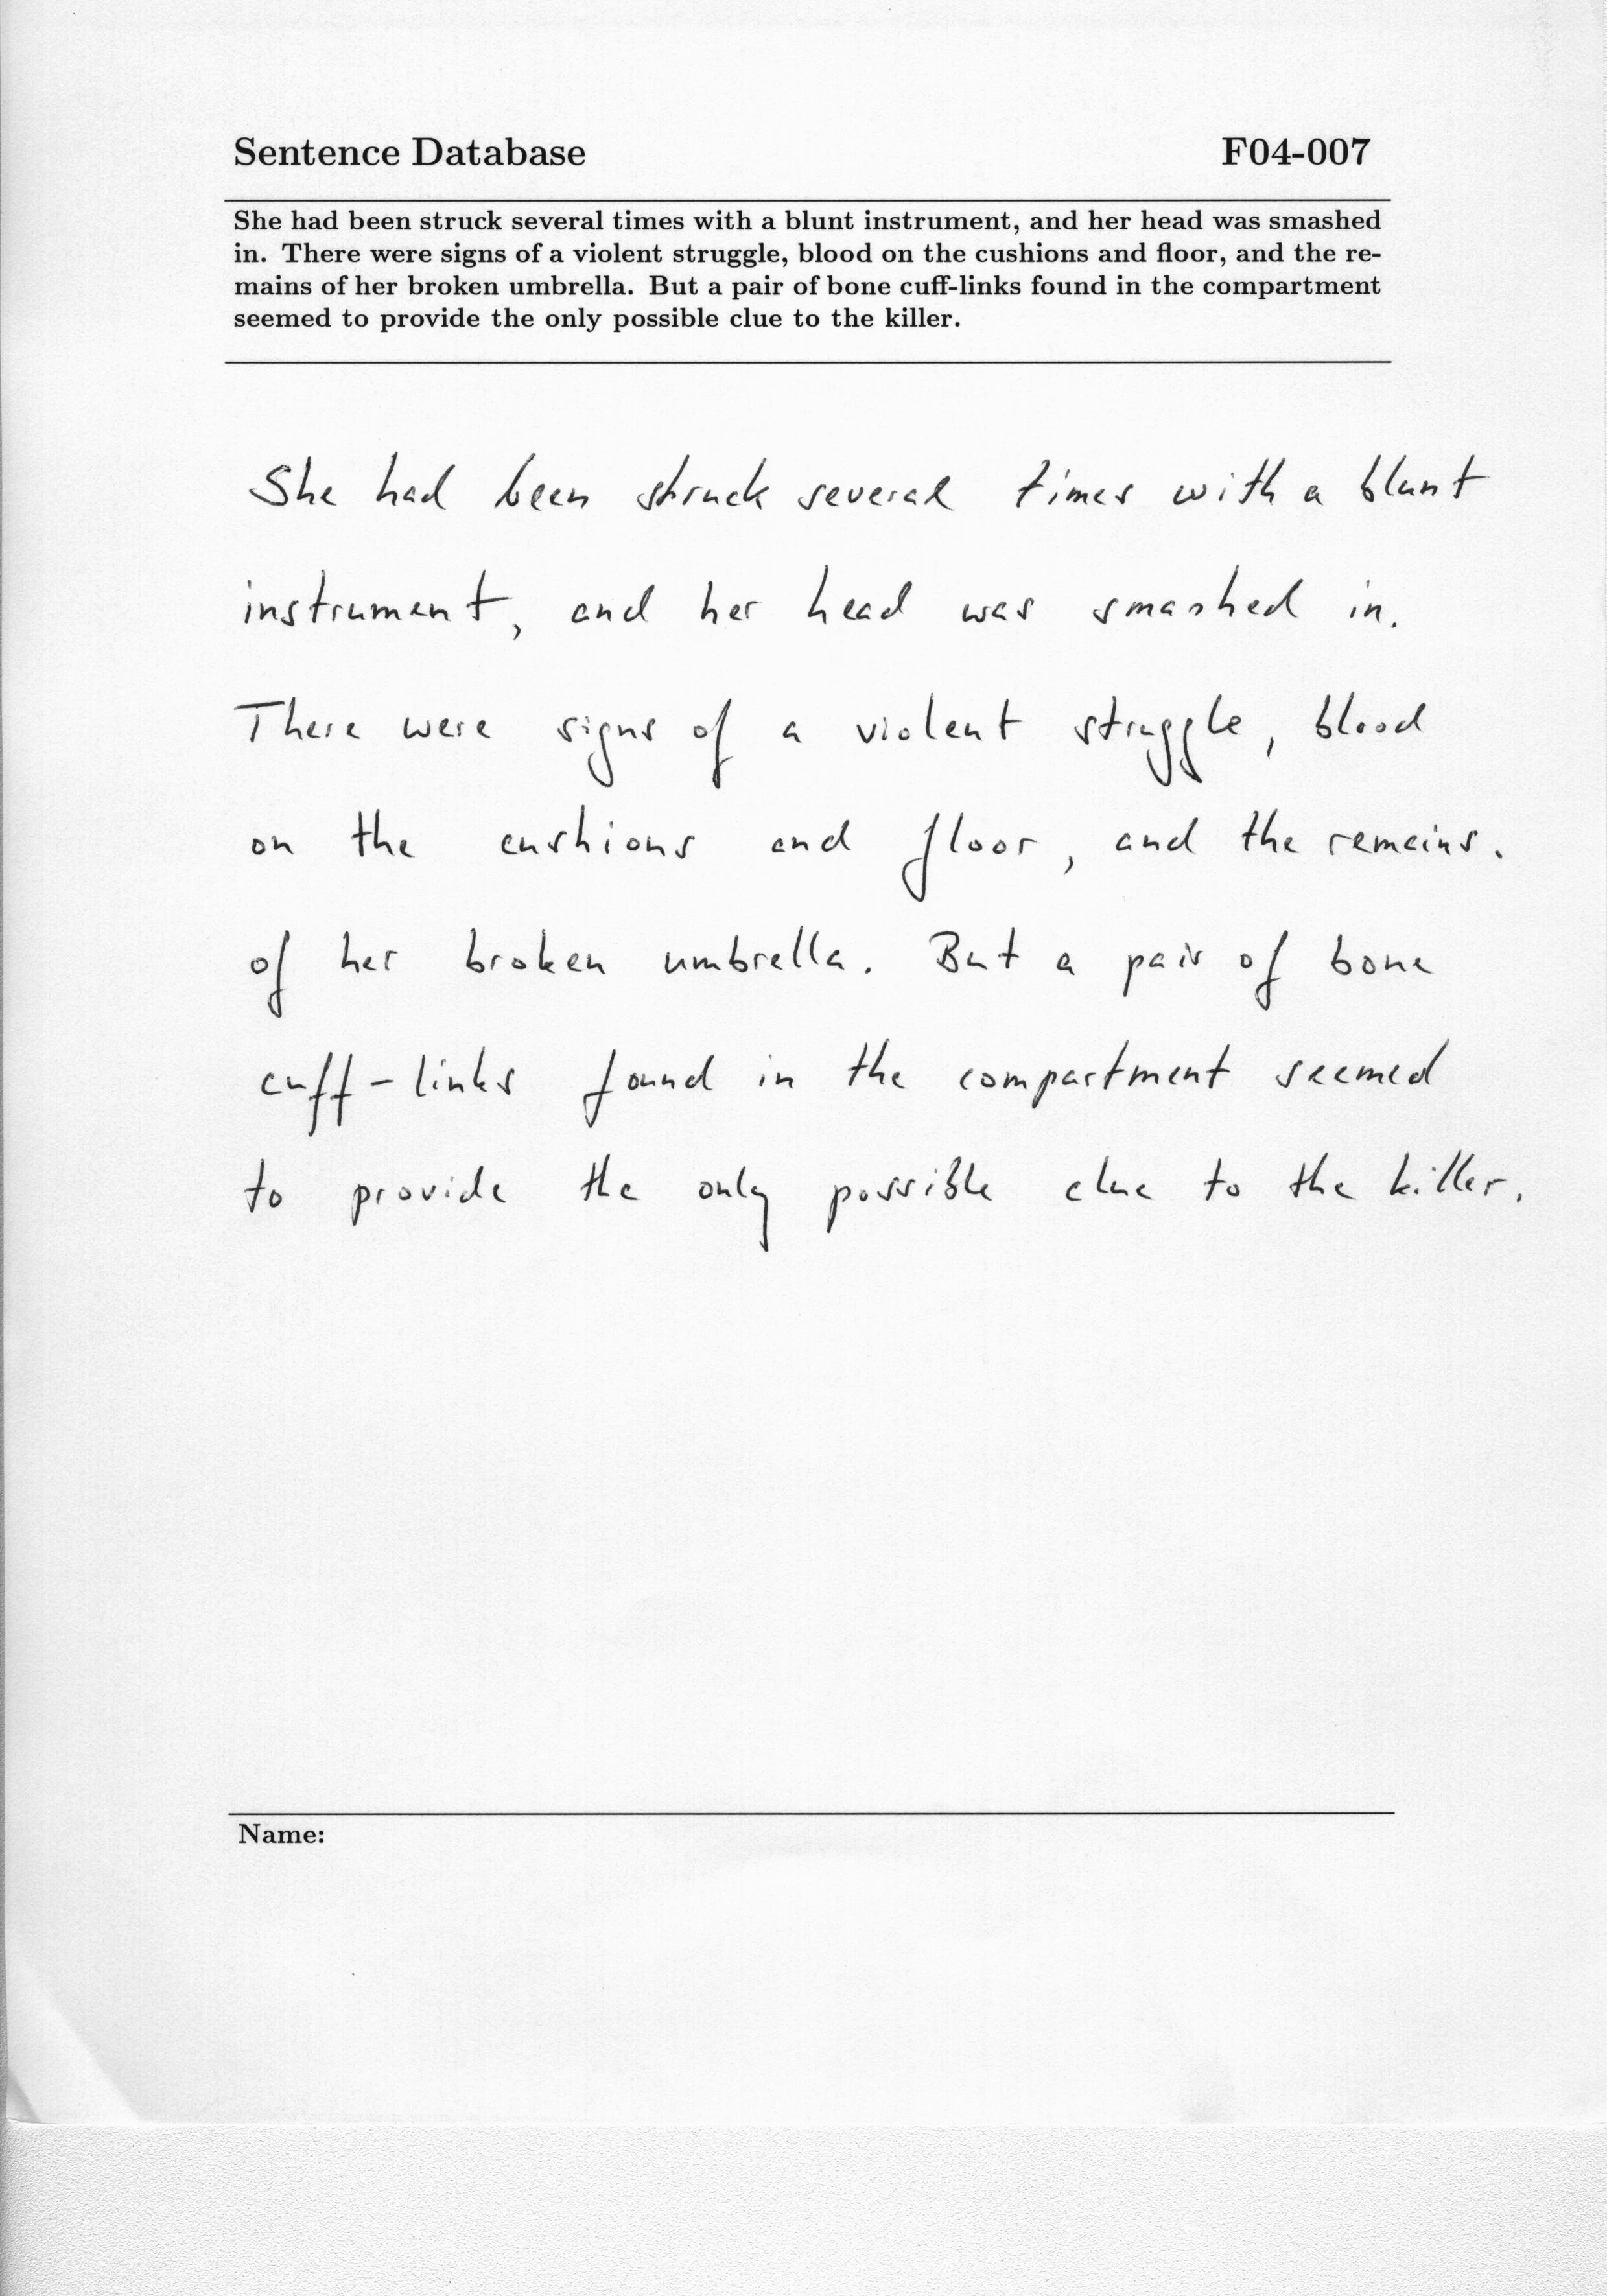 Sentence Database F04-007
She had been struck several times with a blunt instrument, and her head was smashed
in. There were signs of a violent struggle, blood on the cushions and floor, and the re-
mains of her broken umbrella. But a pair of bone cuff-links found in the compartment
seemed to provide the only possible clue to the killer.
She had been struck several times with a blunt
instrument, and her head was smashed in.
There were signs of a violent struggle, blood
on the cushions and floor, and the remains.
of her broken umbrella. But a pair of bone
cuff-links found in the compartment seemed
to provide the only possible clue to the killer.
Name: